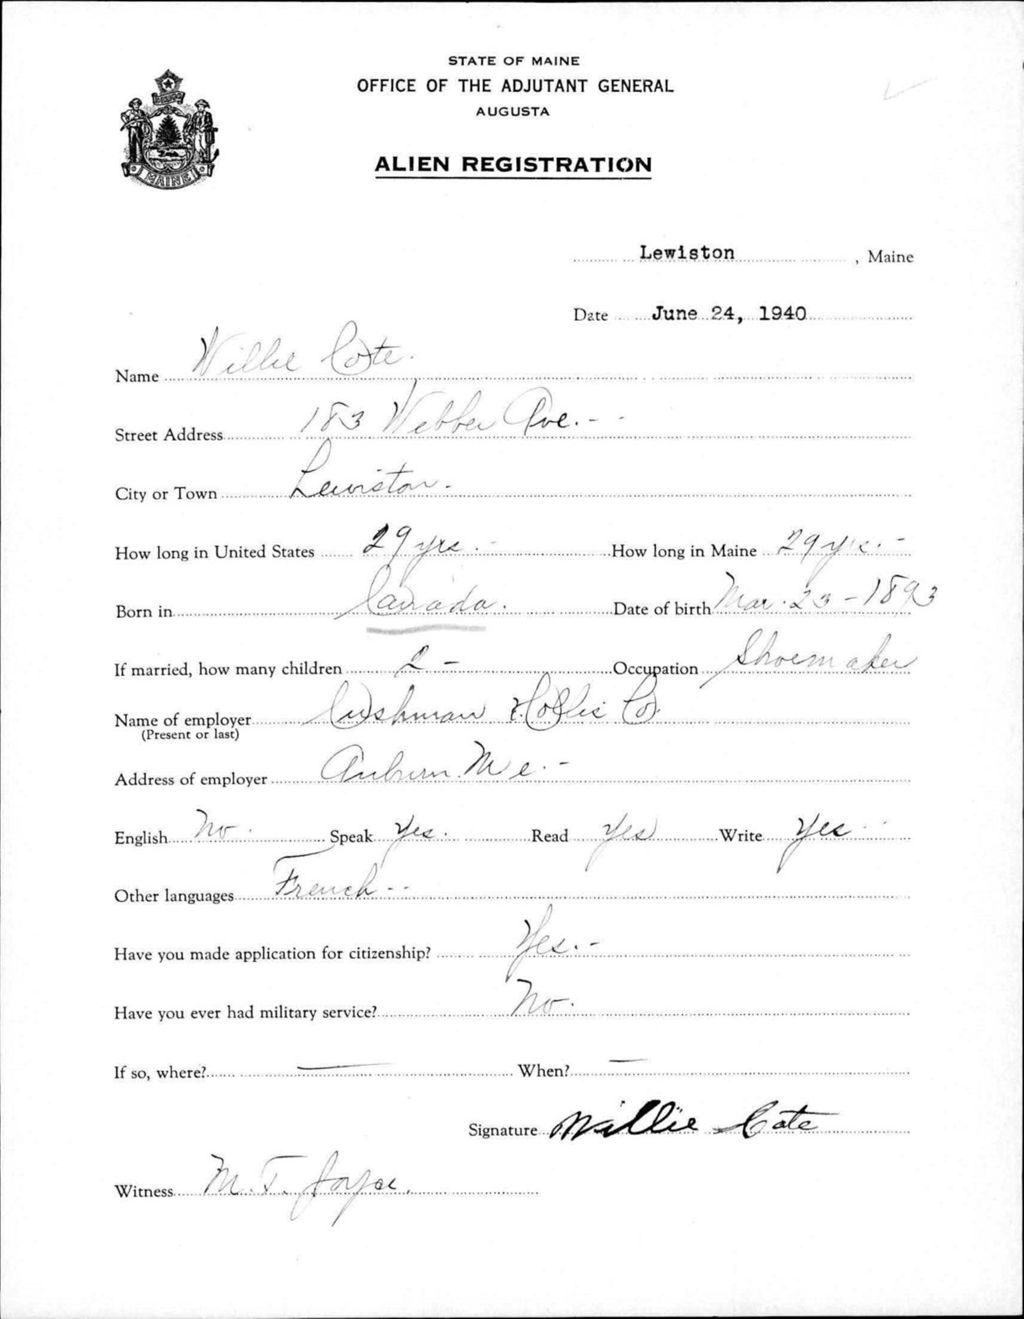 STATE OF MAINE
OFFICE OF THE ADJUTANT GENERAL
AUGUSTA
ALIEN REGISTRATION
MAINE
Lewiston, Maine
Date June 24, 1940
Name Willie Cote.
Street Address 183 Webber Ave. - -
City or Town Lewiston. -
How long in United States 29 yrs. - How long in Maine 29 yrs. -
Born in Canada. Date of birth Mar. 23 - 1893
If married, how many children 2 - Occupation Shoemaker
Name of employer Cushman Hollis Co.
(Present or last)
Address of employer Auburn Me. -
English No. Speak Yes. Read Yes Write Yes
Other languages French - -
Have you made application for citizenship? Yes. -
Have you ever had military service? No.
If so, where? — When? —
Signature Willie Cote
Witness M. T. Joyce.